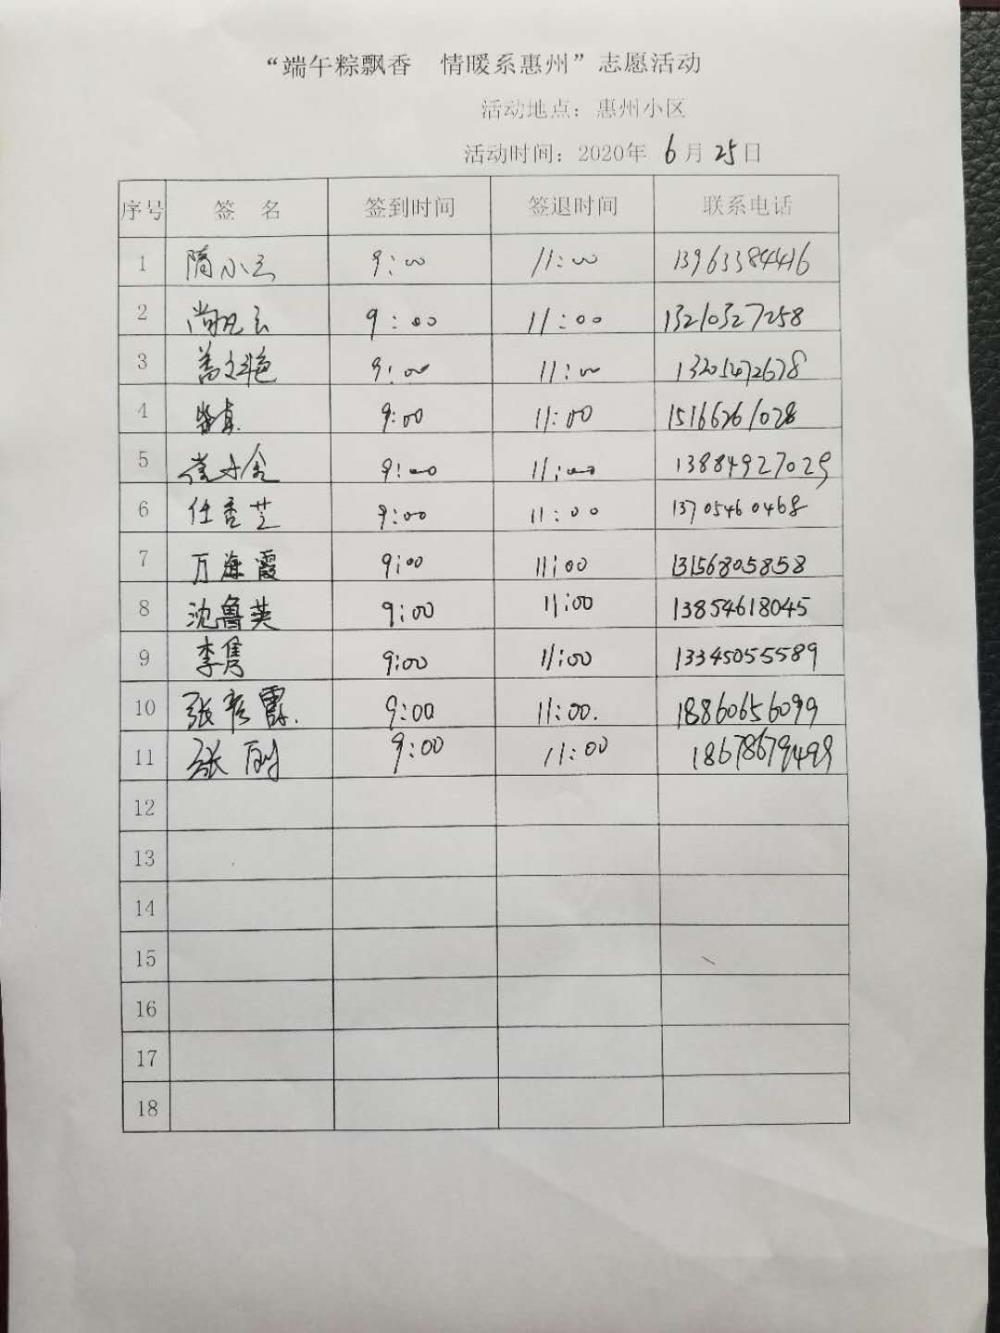 “端午粽飘香　情暖系惠州”志愿活动
活动地点：惠州小区
活动时间：2020年 6月25日
序号 签 名 签到时间 签退时间 联系电话
1 隋小云 9:00 11:00 13963384416
2 尚凡云 9:00 11:00 13210327258
3 9:00 11:00 13205472678
4 9:00 11:00 15166261028
5 9:00 11:00 13884927029
6 任香芝 9:00 11:00 13705460468
7 万海霞 9:00 11:00 13156805858
8 沈鲁英 9:00 11:00 13854618045
9 李隽 9:00 11:00 13345055589
10 张彦霞. 9:00 11:00. 18860656099
11 张刚 9:00 11:00 18678679499
12
13
14
15
16
17
18